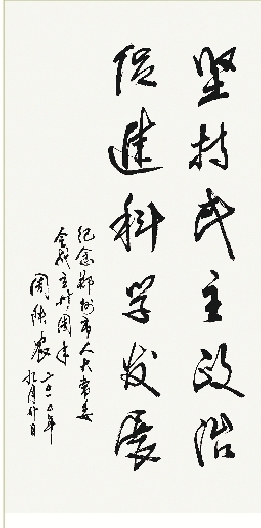 坚持民主政治
促进科学发展
纪念郑州市人大常委
会成立卅周年
周
农
二〇一五年
九月廿日